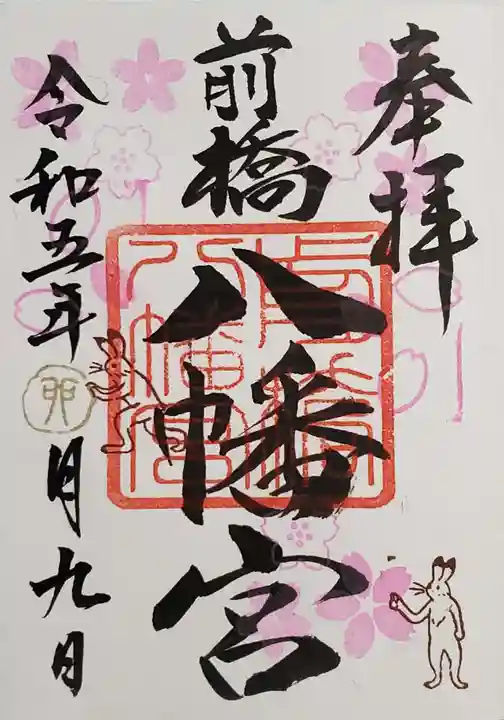 奉拝
前橋
八幡宮
令和五年
卯
月九日
前橋
八幡宮